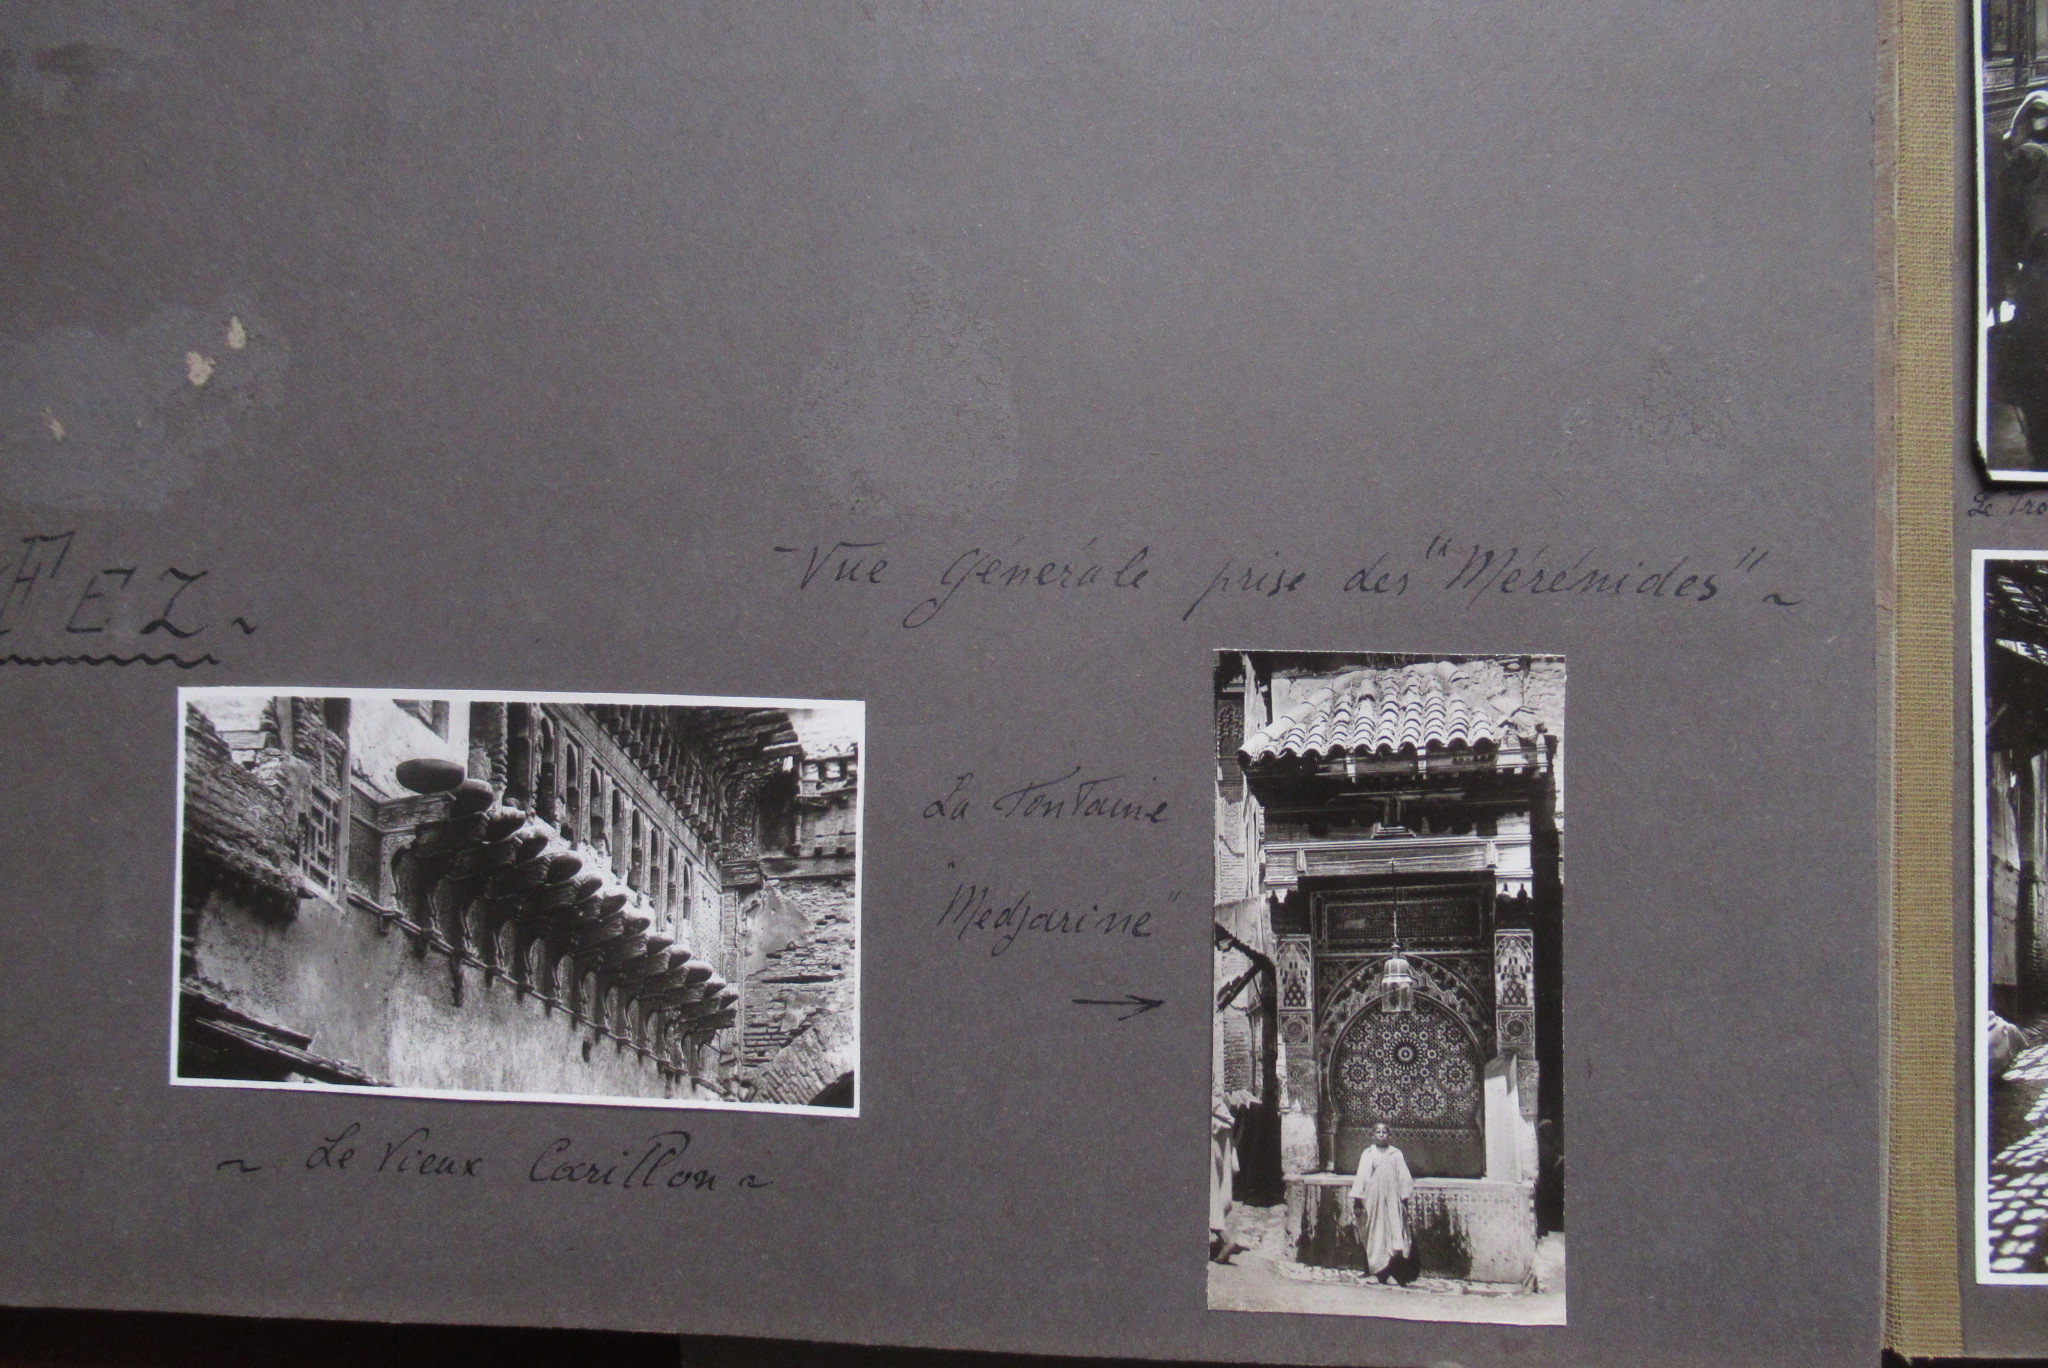 FEZ.
- Vue Générale prise des "Mérénides" ~
La Fontaine
"Medjarine"
~ Le Vieux Carillon ~
Le